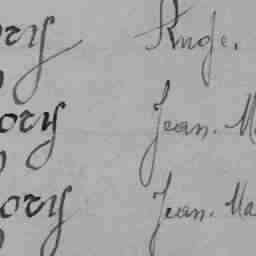 ory Ange.
ory Jean. M
ory Jean. Ma